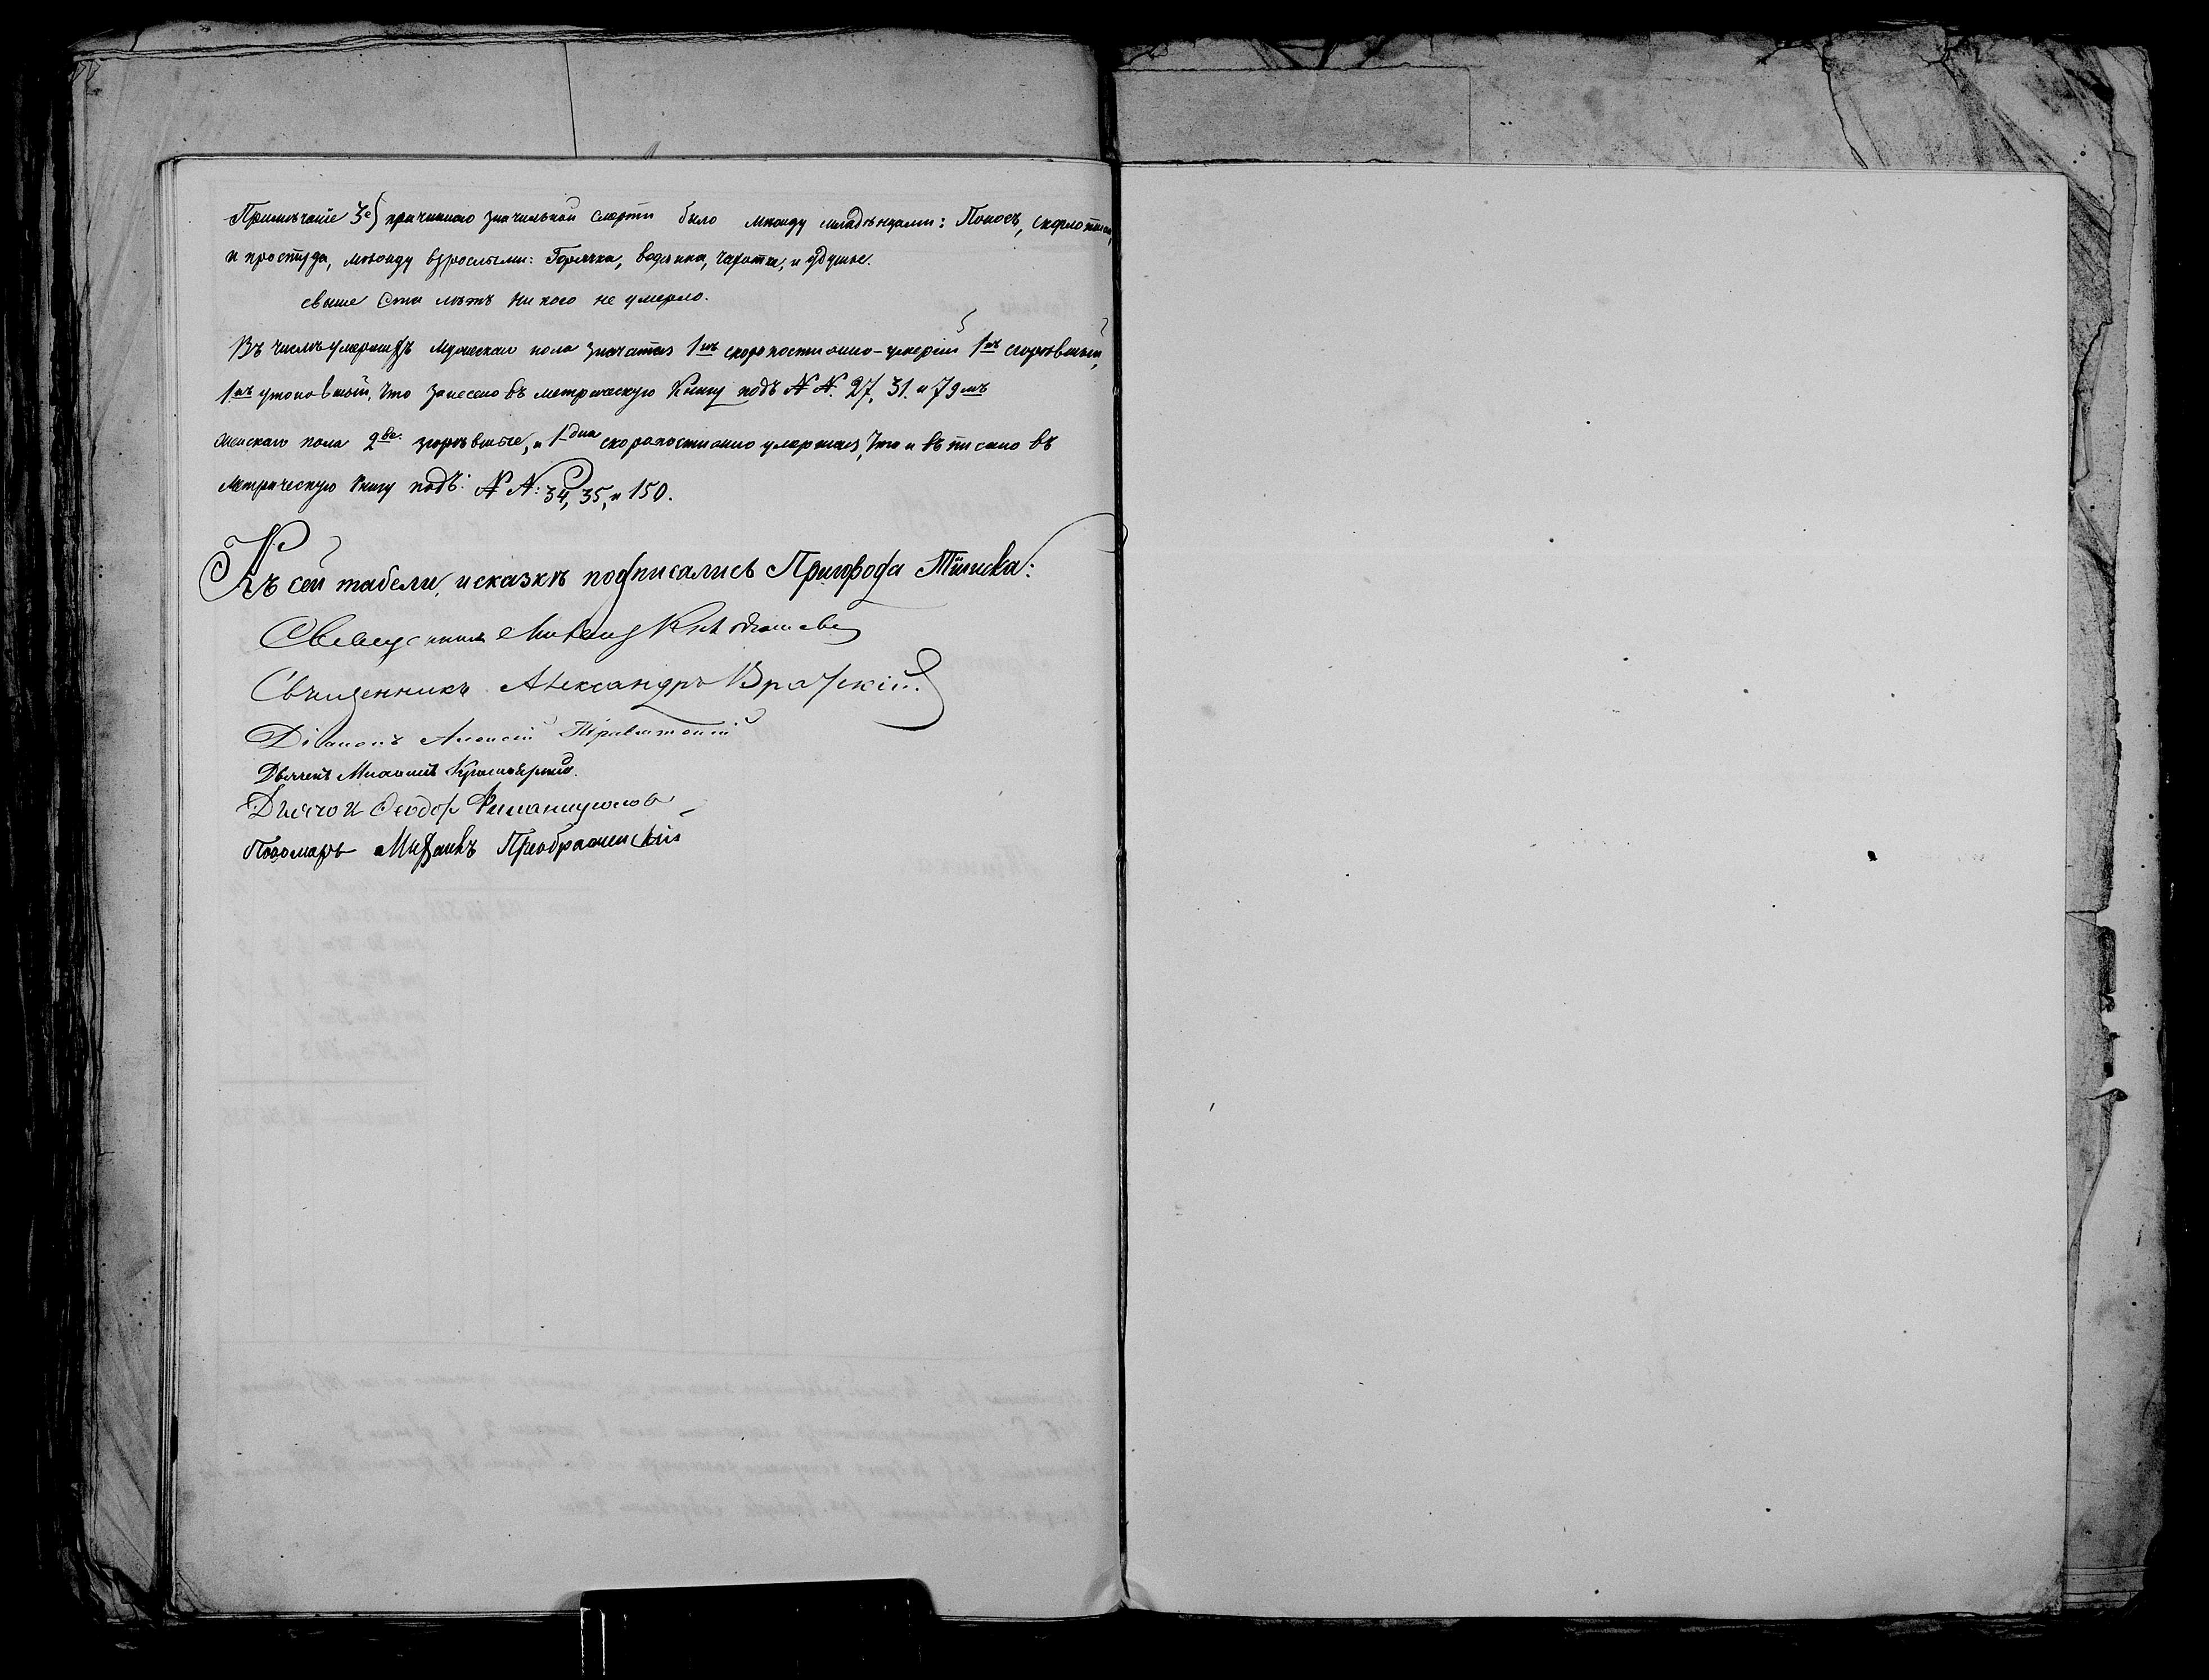 Примѣчаніе 3е) причиною значильной смерти было между младѣнцами: Поносъ, скарлотина,
и простуда, между взрослыми: Горячка, водянка, чахотка, и удушье.
свыше Ста лѣтъ ни кого не умерло.
Въ числѣ умершихъ Мужескаго пола значатся 1нъ скоропостижно-умершій 1нъ сгорѣвшый,
1нъ утоповшій, что занесено въ метрическую Книгу подъ №№. 27, 31. и 79мъ
женскаго пола 2ве. згорѣвшые, и 1дна скоропостижно умершая, Что и вписано въ
Метрическую Книгу подъ: №№: 34, 35, и 150.
Къ сей табели, и сказкѣ подписались Пригорода Тіинска:
Священникъ Михаилъ
Священникъ Александръ
Діаконъ Алексій
Дьячекъ Михаилъ Красноярскій.
Дьячок Феодоръ
Пономарь Михаилъ Преображенскій